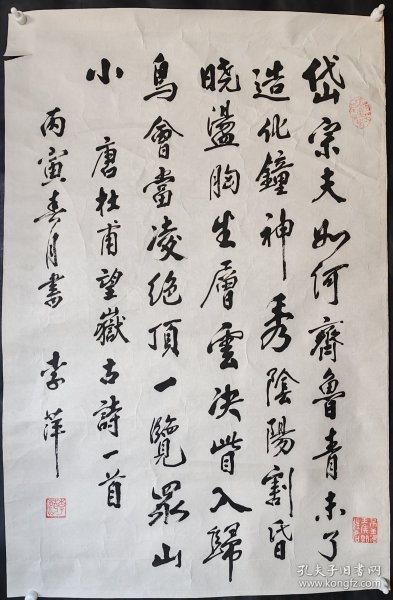 岱宗夫如何齊魯青未了
造化鐘神秀陰陽割昏
曉盪胸生層雲決眥入歸
鳥會當凌絕頂一覽眾山
小
唐杜甫望嶽古詩一首
丙寅春月書
李萍
孔夫子旧书网
www.kongfz.com